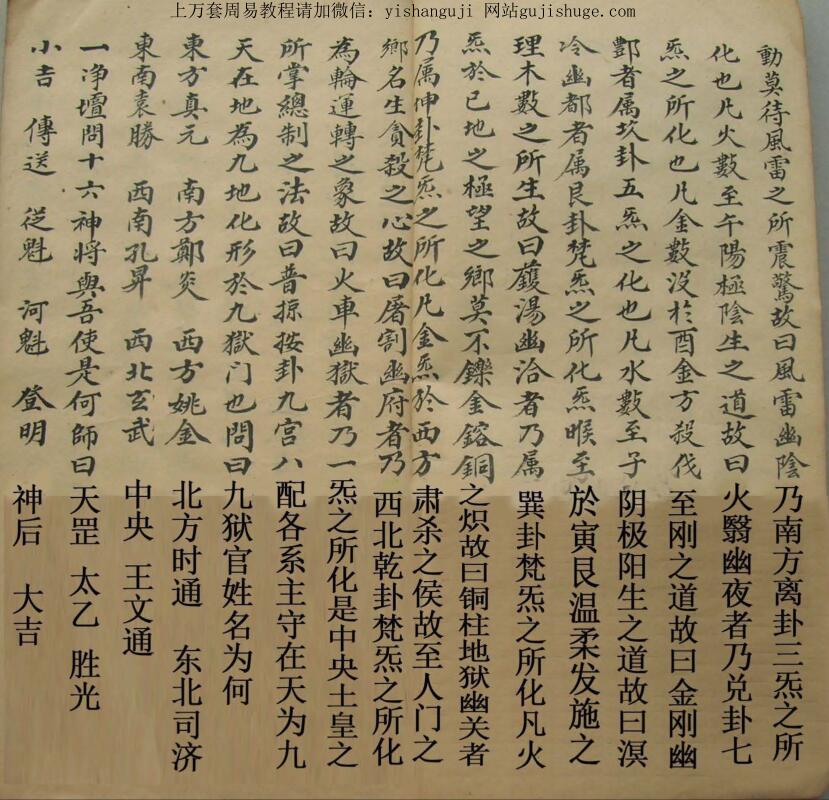 上万套周易教程请加微信：yishanguji 网站gujishuge.com
動莫待風雷之所震驚故曰風雷幽陰乃南方离卦三炁之所
化也凡火數至午陽極陰生之道故曰火翳幽夜者乃兑卦七
炁之所化也凡金數没於酉金方殺伐至刚之道故曰金刚幽
酆者属坎卦五炁之化也凡水數至子阴极阳生之道故曰溟
冷幽都者属艮卦梵炁之所化炁睺至於寅艮温柔发施之
理木數之所生故曰鑊湯幽治者乃属巽卦梵炁之所化凡火
炁於巳地之極望之鄉莫不鑠金鎔銅之炽故曰铜柱地狱幽关者
乃属坤卦梵炁之所化凡金炁於西方肃杀之侯故至人门之
鄉名生貪殺之心故曰屠割幽府者乃西北乾卦梵炁之所化
為輪運轉之象故曰火車幽獄者乃一炁之所化是中央土皇之
所掌總制之法故曰普掠按卦九宫八配各系主守在天为九
天在地為九地化形於九獄门也問曰九狱官姓名为何
東方真元 南方鄭炎 西方姚金 北方时通 东北司济
東南袁勝 西南孔昇 西北玄武 中央 王文通
一净壇問十六神將與吾使是何師曰天罡 太乙 胜光
小吉 傳送 從魁 河魁 登明 神后 大吉